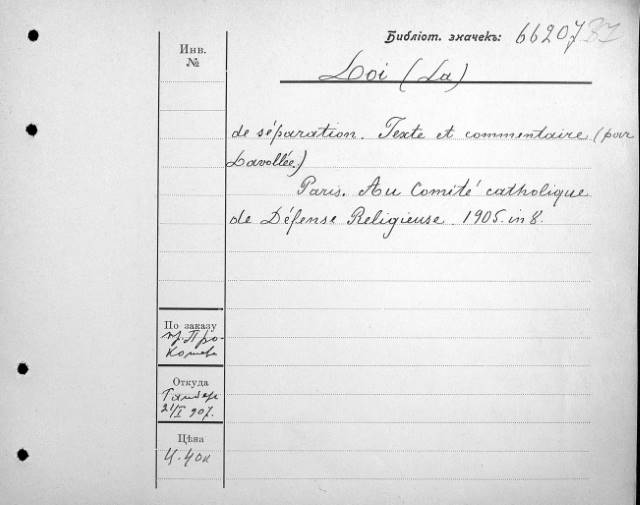 Библіот. значекъ: 66207
Инв.
№
Loi (La)
de séparation. Texte et commentaire (par
Lavollée.)
Paris. Au Comité catholique
de Défense Religieuse. 1905. in 8.
По заказу
Откуда
21/I 907.
Цѣна